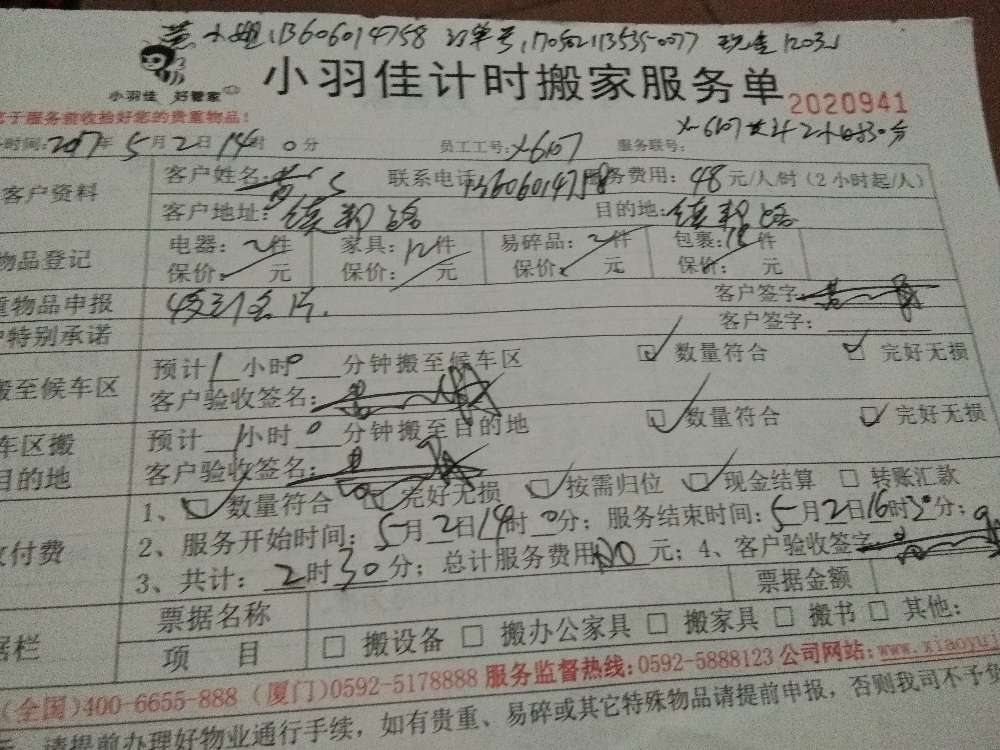 小姐,13606014758 订单号:170502113535-0077 现金120元
小羽佳 好管家
小羽佳计时搬家服务单
2020941
于服务前收拾好您的贵重物品!
X-6107 共计2小时30分
时间:2017年5月2日14时0分 员工工号:X-6107 服务联号:
客户资料
客户姓名: 联系电话13606014758 服务费用:48元/人/时(2小时起/人)
客户地址: 目的地:
物品登记
电器:2件 家具:12件 易碎品:2件 包裹:18件
保价: 元 保价: 元 保价: 元 保价: 元
重物品申报 收到名片. 客户签字
特别承诺 客户签字:
搬至候车区
预计1小时0分钟搬至候车区 数量符合 完好无损
客户验收签名:
车区搬
目的地
预计1小时0分钟搬至目的地 数量符合 完好无损
客户验收签名:
付费
1、数量符合 完好无损 按需归位 现金结算 转账汇款
2、服务开始时间:5月2日14时0分;服务结束时间:5月2日16时30分;
3、共计:2时30分;总计服务费用120元;4、客户验收签字
据栏
票据名称 票据金额
项 目 搬设备 搬办公家具 搬家具 搬书 其他:
(全国)400-6655-888 (厦门)0592-5178888 服务监督热线:0592-5888123 公司网站:www.xiaoyuj
请提前办理好物业通行手续,如有贵重、易碎或其它特殊物品请提前申报,否则我司不予